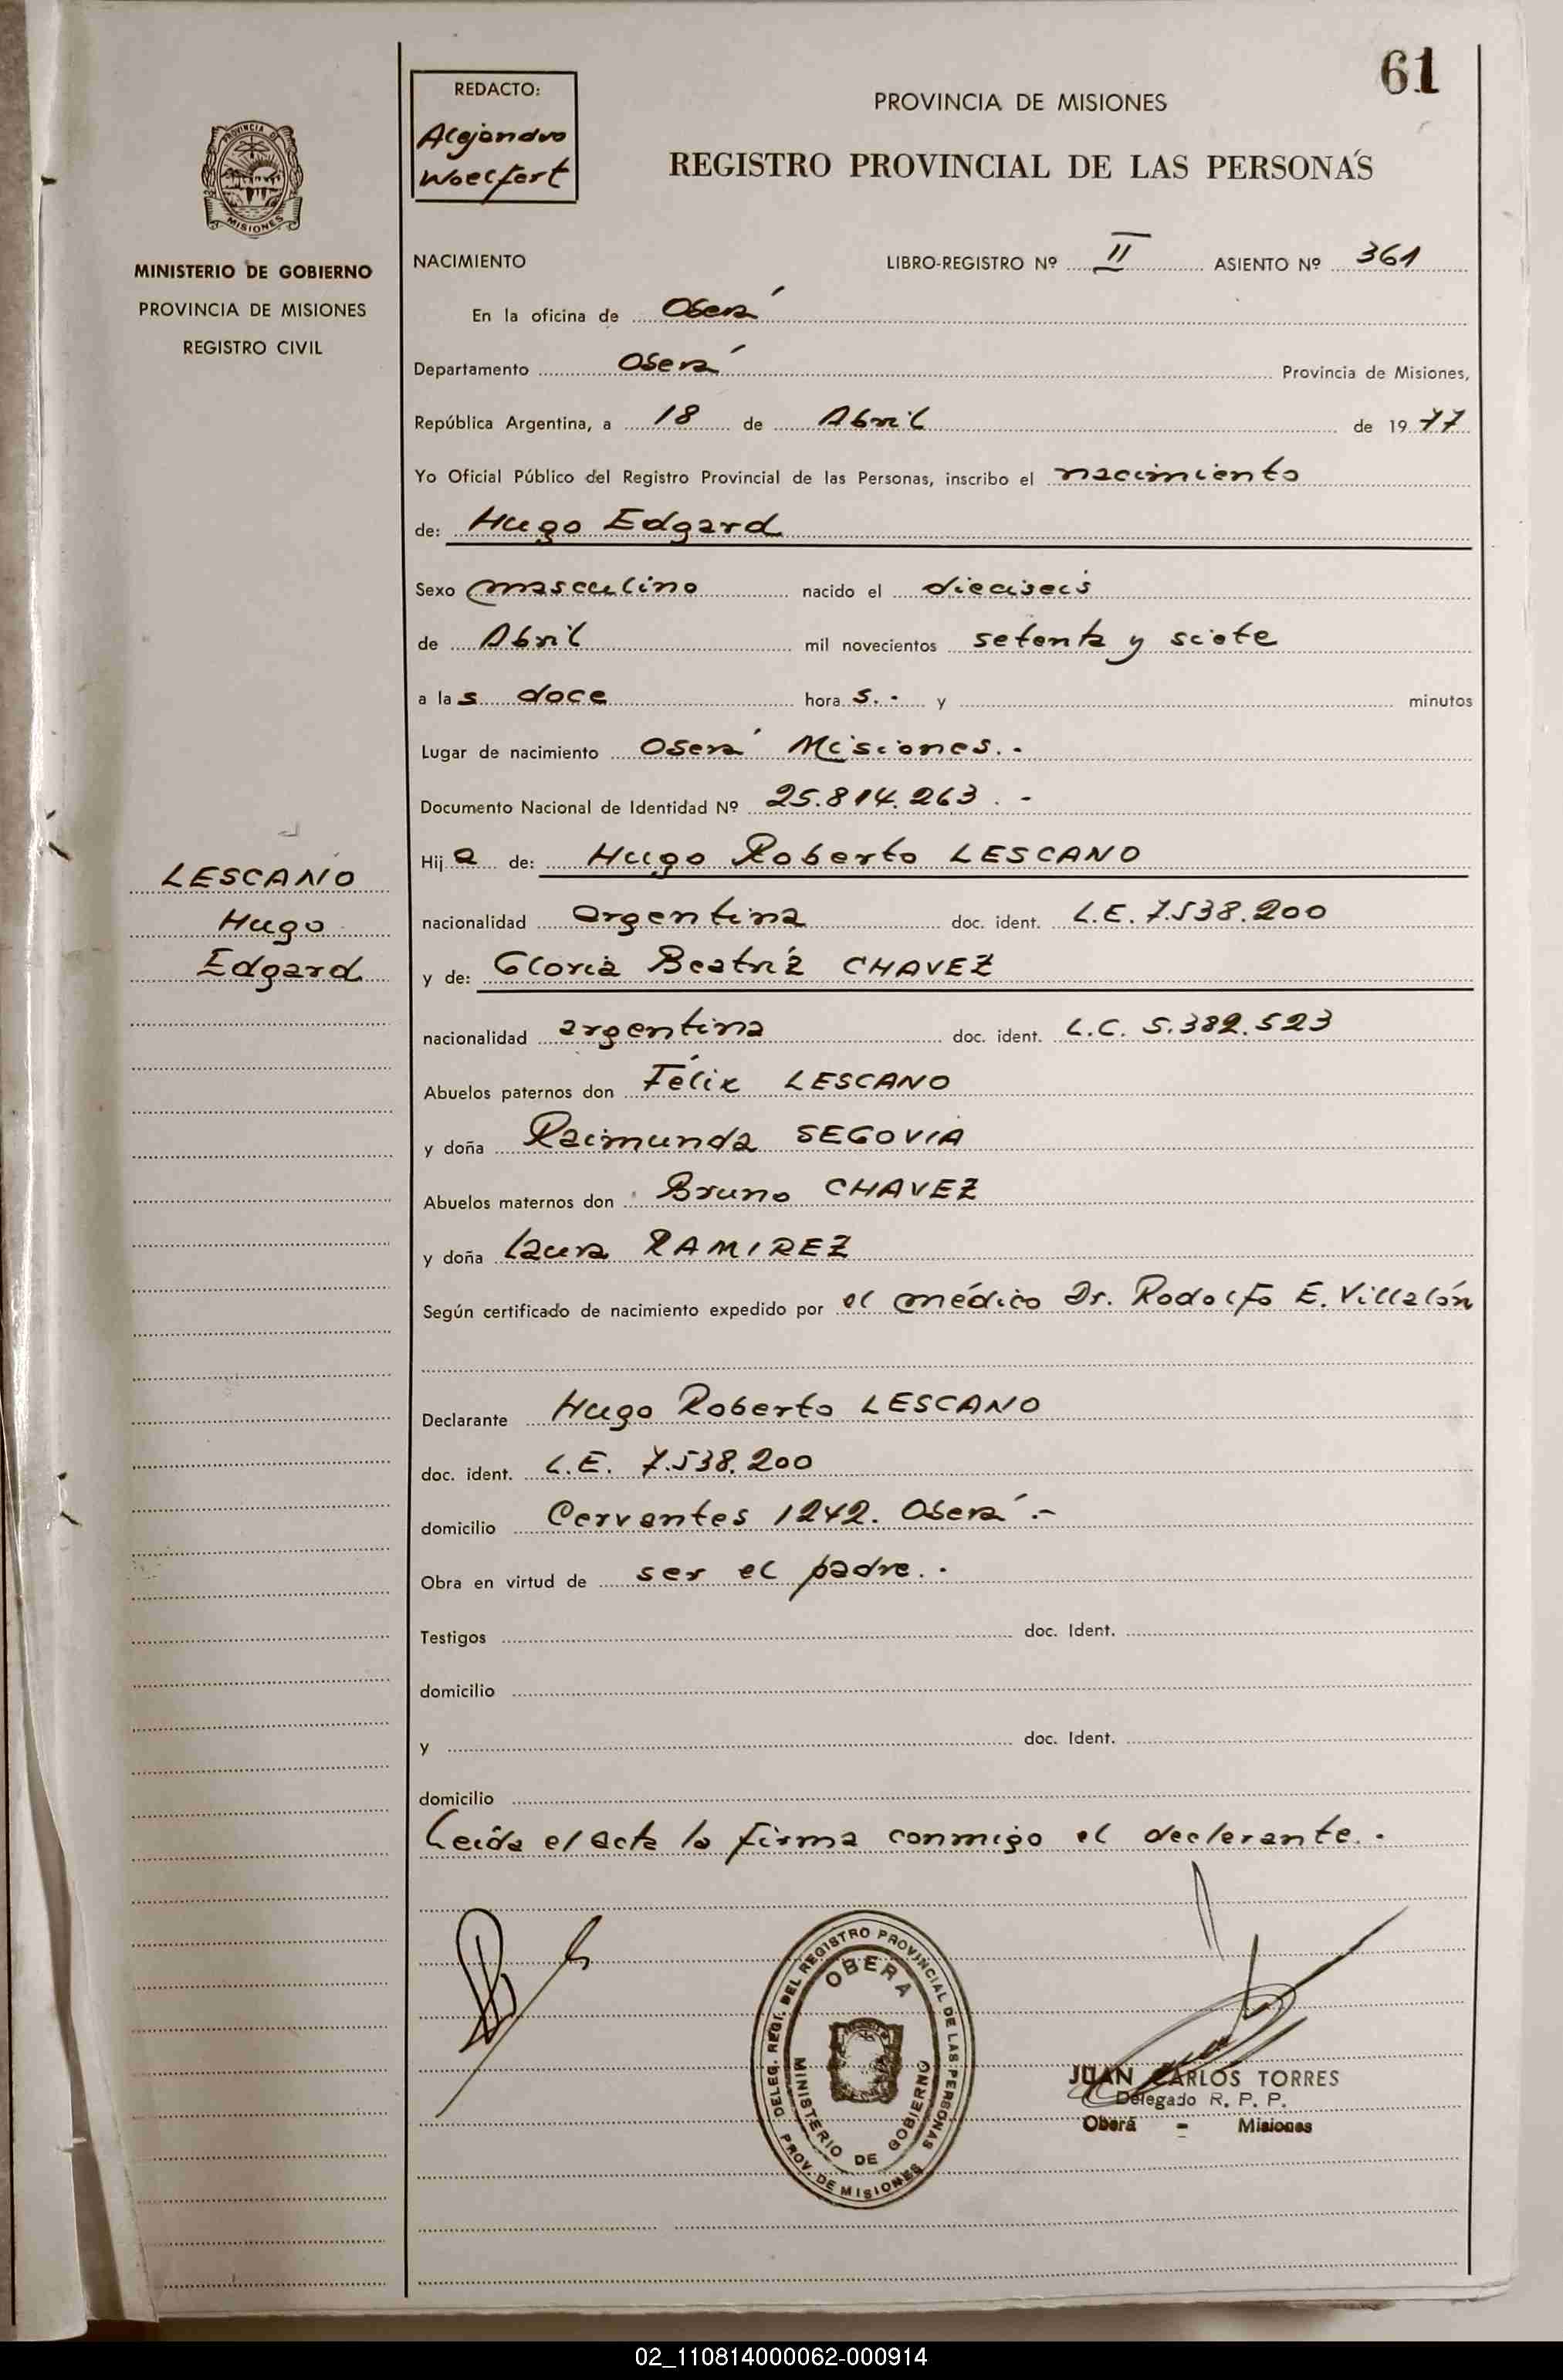 61
REDACTO:
Alejandro
Woelfert
PROVINCIA DE MISIONES
REGISTRO PROVINCIAL DE LAS PERSONAS
PROVINCIA DE
MISIONES
MINISTERIO DE GOBIERNO
PROVINCIA DE MISIONES
REGISTRO CIVIL
NACIMIENTO LIBRO-REGISTRO Nº II ASIENTO Nº 361
En la oficina de Oberá
Departamento Oberá Provincia de Misiones,
República Argentina, a 18 de Abril de 1977
Yo Oficial Público del Registro Provincial de las Personas, inscribo el nacimiento
de: Hugo Edgard
Sexo masculino nacido el dieciseis
de Abril mil novecientos setenta y siete
a las doce horas.- y minutos
Lugar de nacimiento Oberá Misiones.-
Documento Nacional de Identidad Nº 25.814.263.-
LESCANO
Hugo
Edgard
Hijo de: Hugo Roberto LESCANO
nacionalidad argentina doc. ident. L.E. 7.538.200
y de: Gloria Beatriz CHAVEZ
nacionalidad argentina doc. ident. L.C. 5.382.523
Abuelos paternos don Félix LESCANO
y doña Raimunda SEGOVIA
Abuelos maternos don Bruno CHAVEZ
y doña Laura RAMIREZ
Según certificado de nacimiento expedido por el médico Dr. Rodolfo E. Villalón
Declarante Hugo Roberto LESCANO
doc. ident. L.E. 7.538.200
domicilio Cervantes 1242. Oberá.-
Obra en virtud de ser el padre.-
Testigos doc. Ident.
domicilio
y doc. Ident.
domicilio
Leída el acta la firma conmigo el declarante.-
DELEG. REGI. DEL REGISTRO PROVINCIAL DE LAS PERSONAS
OBERA
MINISTERIO DE GOBIERNO
PROV. DE MISIONES
JUAN CARLOS TORRES
Delegado R. P. P.
Oberá - Misiones
02_110814000062-000914